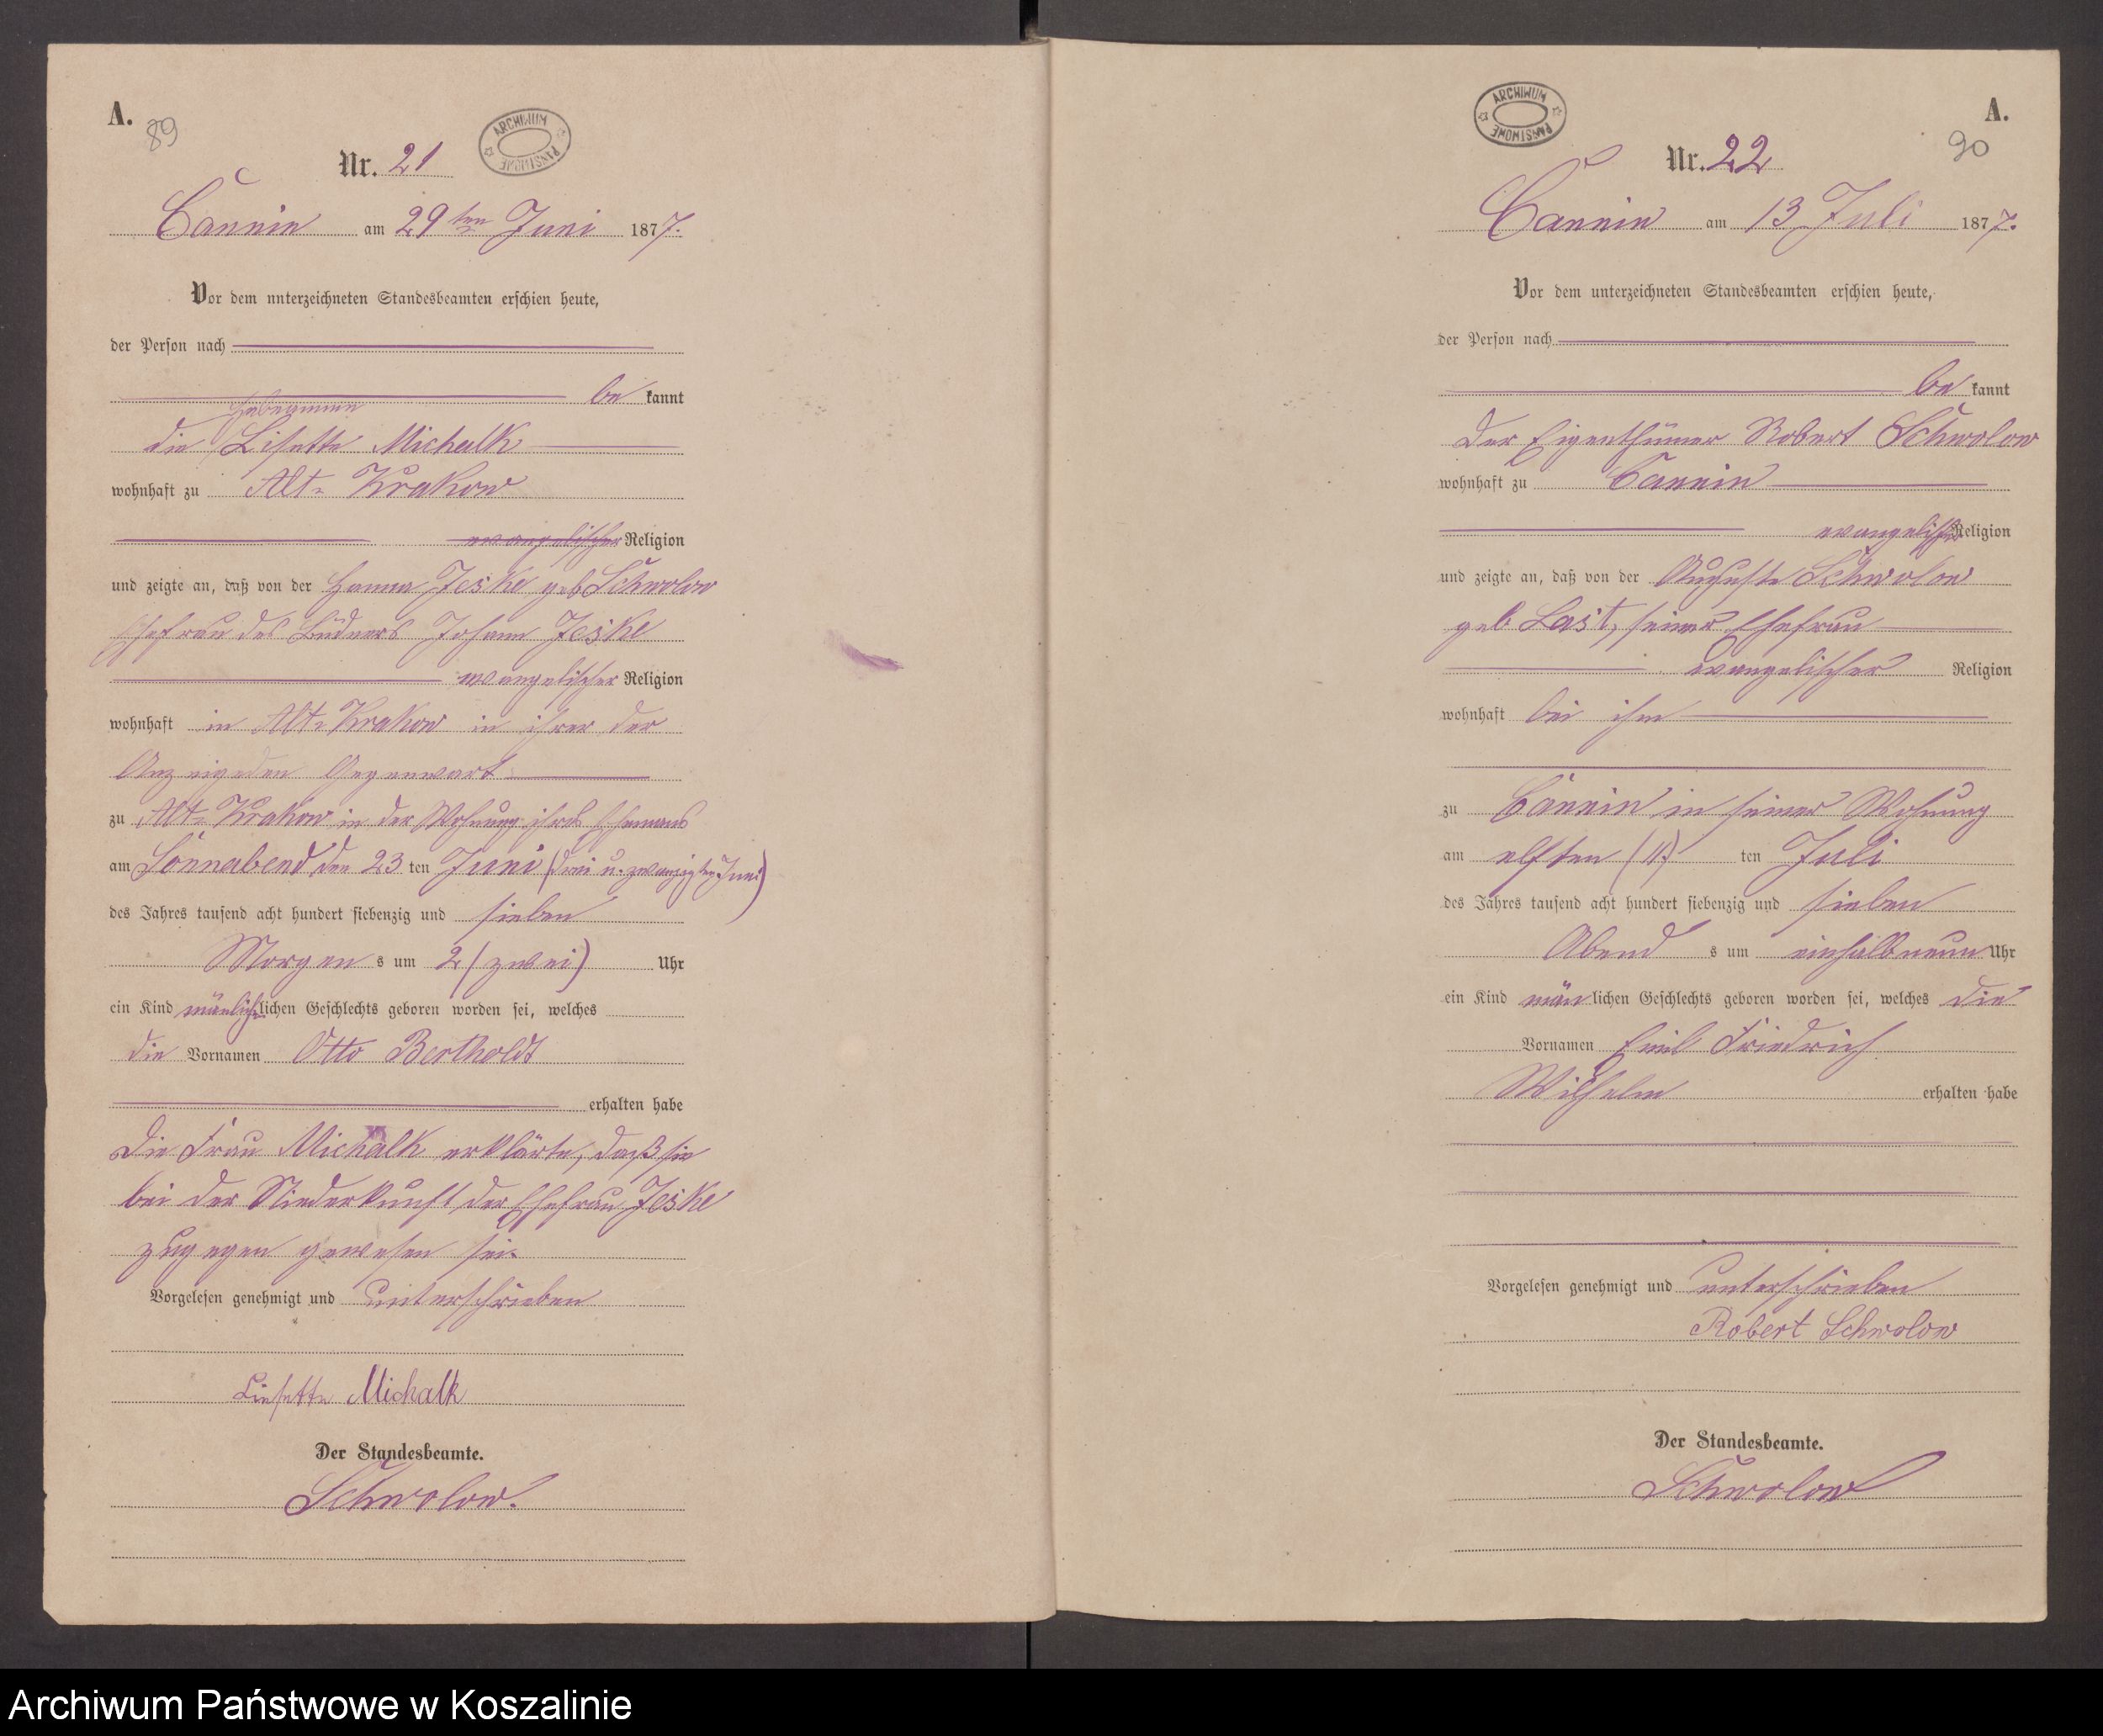 A.
89
ARCHIWUM PAŃSTWOWE
Nr. 21
Cannin am 29ten Juni 1877.
Vor dem unterzeichneten Standesbeamten erschien heute,
der Person nach
be kannt
Hebeamme
die Lisette Michalk
wohnhaft zu Alt-Krakow
evangelischer Religion
und zeigte an, daß von der Hanna Jeske geb Schwolow
Ehefrau des Büdners Johann Jeske
evangelischer Religion
wohnhaft in Alt-Krakow in ihrer der
Anzeigeden Gegenwart
zu Alt-Krakow in der Wohnung ihres Ehemans
am Sonnabend den 23 ten Juni (drei u. zwanzigten Juni)
des Jahres tausend acht hundert siebenzig und sieben
Morgen s um 2 (zwei) Uhr
ein Kind mänlichen lichen Geschlechts geboren worden sei, welches
die Vornamen Otto Bertholdt
erhalten habe
Die Frau Michalk erklärte, daß sie
bei der Niederkunft der Ehefrau Jeske
zugegen gewesen sei.
Vorgelesen genehmigt und unterschrieben
Liesette Michalk
Der Standesbeamte.
Schwolow.
ARCHIWUM PAŃSTWOWE
A.
90
Nr. 22
Cannin am 13 Juli 1877.
Vor dem unterzeichneten Standesbeamten erschien heute,
der Person nach
be kannt
der Eigenthümer Robert Schwolow
wohnhaft zu Cannin
evangelischer Religion
und zeigte an, daß von der Auguste Schwolow
geb Last, seiner Ehefrau
evangelischer Religion
wohnhaft bei ihm
zu Cannin in seiner Wohnung
am elften (11) ten Juli
des Jahres tausend acht hundert siebenzig und sieben
Abend s um einhalbneun Uhr
ein Kind män lichen Geschlechts geboren worden sei, welches die
Vornamen Emil Friedrich
Wilhelm erhalten habe
Vorgelesen genehmigt und unterschrieben
Robert Schwolow
Der Standesbeamte.
Schwolow
Archiwum Państwowe w Koszalinie